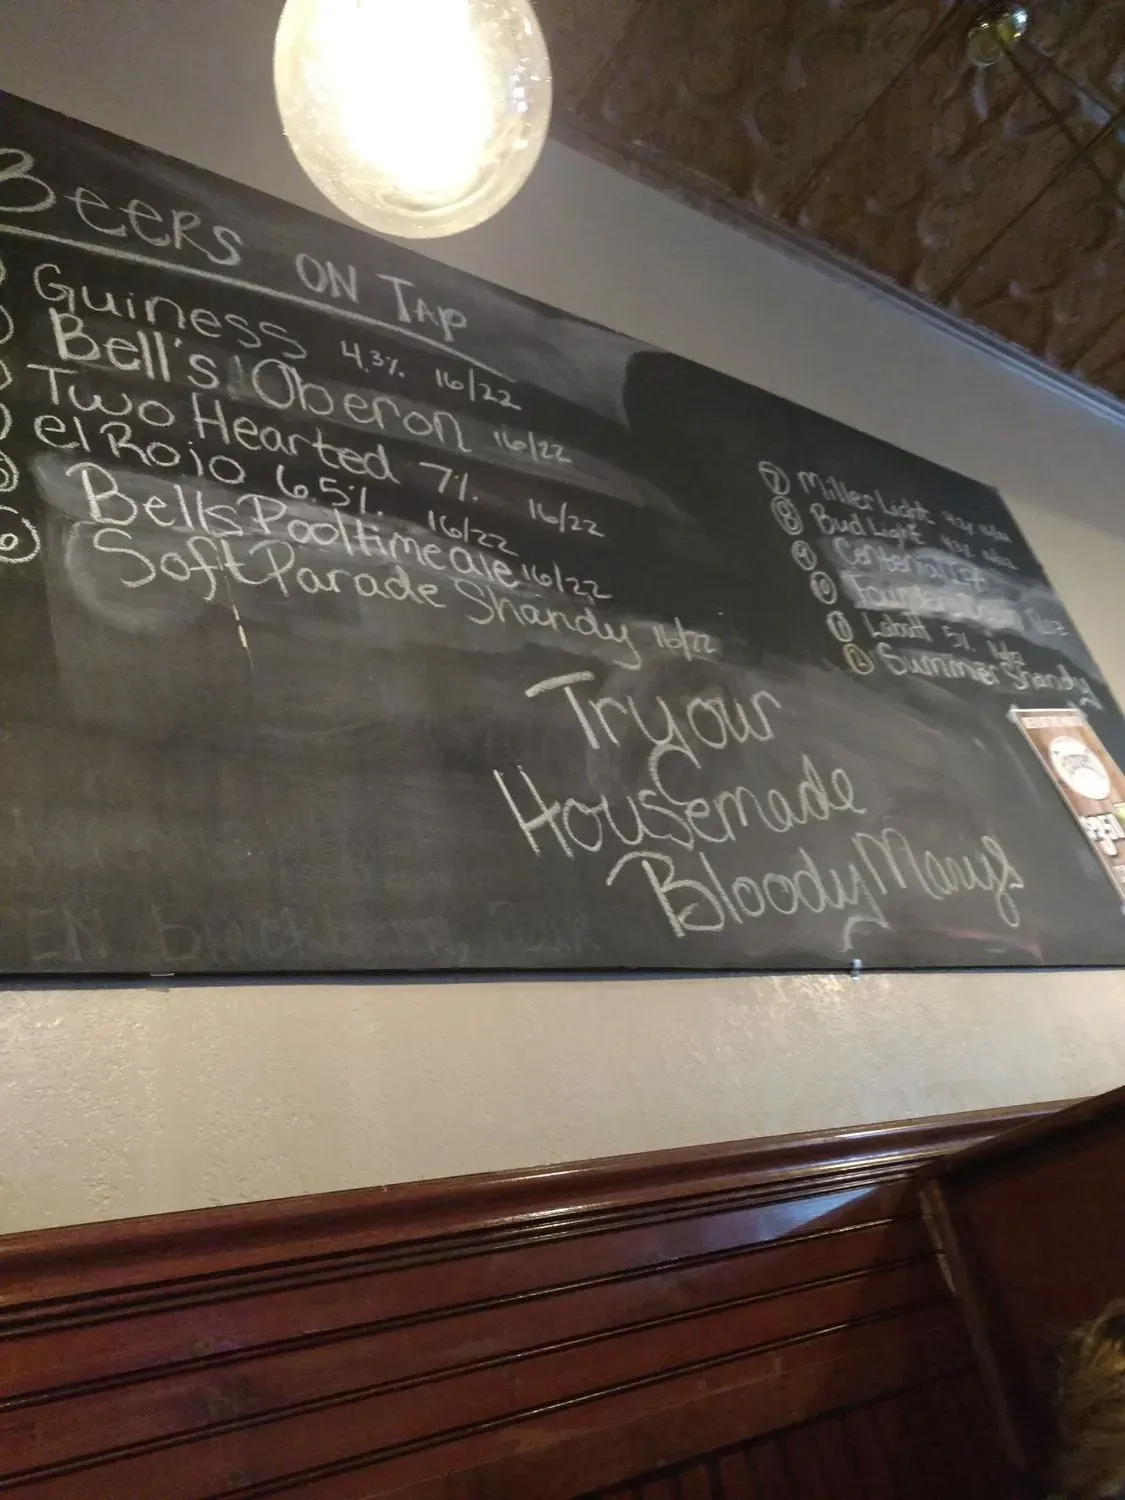 BEERS ON TAP
Guiness 4.3% 16/22
Bell's Oberon 16/22
Two Hearted 7% 16/22
el Rojo 6.5% 16/22
Bells Pooltime ale 16/22
6 Soft Parade Shandy 16/22
7 Miller Light
8 Bud Light
9
10
11 Labatt 5%
Summer Shandy
Try our
Housemade
Bloody Marys